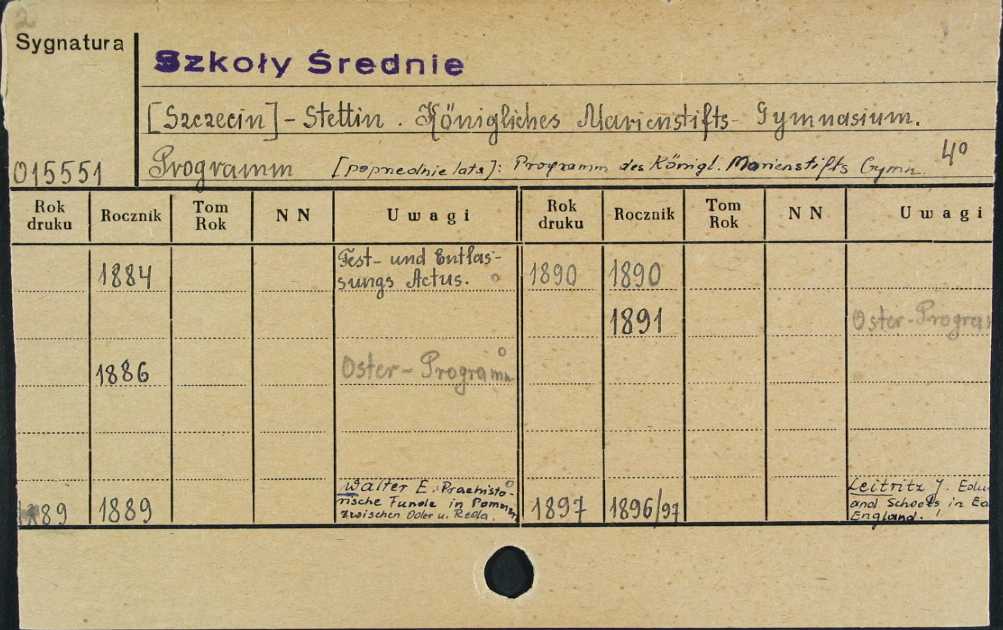 2
Sygnatura
Szkoły Średnie
[Szczecin] - Stettin. Königliches Marienstifts- Gymnasium.
015551
Programm [poprzednie lata]: Programm des Königl. Marienstifts Gymn. 4º
Rok druku Rocznik Tom Rok NN Uwagi Rok druku Rocznik Tom Rok NN Uwagi
1884 Fest- und Entlas-
sungs Actus. 1890 1890
1891 Oster-Program
1886 Oster-Programm
1889 1889 Walter E. Praehisto-
rische Funde in Pommern
zwischen Oder u. Rega.
1897 1896/97 Leitritz J.
and Schools in Ea
England.